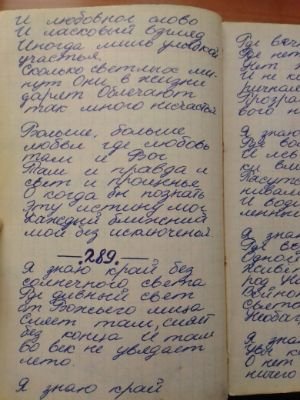 И любовное слово
И ласковый взгляд
Иногда лишь улыбкой
участья,
Сколько светлых ми-
нут Они в жизни
дарят Облегчают
так много несчастья

Больше, больше
любви где любовь
там и Бог
Там и правда и
свет и прощенье
О когда бы познать
эту истину мог
Каждый ближний
мой без исключенья.
289.
Я знаю край без
солнечного света
Где дивный свет
от Божьего лица
Сияет там, сияет
без конца И там
во век не увядает
лето.

Я знаю край
Где
Где нет
Нет
И не к
Прозра
вого н
Я знаю
Где во
И лев
Пасутся
И вода
Я знаю
Где в
Одной
Живет
род
Свята
Я знаю
О нет
ничего